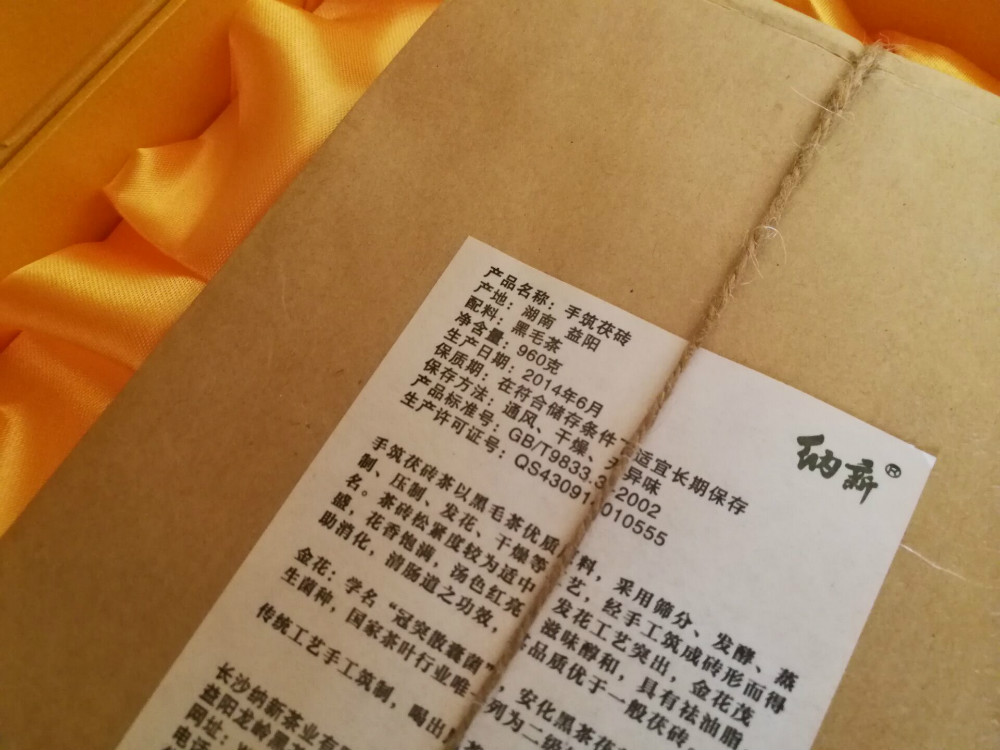 纳新®
产品名称：手筑茯砖
产地：湖南 益阳
配料：黑毛茶
净含量：960克
生产日期：2014年6月
保质期：在符合储存条件下适宜长期保存
保存方法：通风、干燥、无异味
产品标准号：GB/T9833.3 2002
生产许可证号：QS43091 010555
手筑茯砖茶以黑毛茶优质 料，采用筛分、发酵、蒸
制、压制、发花、干燥等 艺，经手工筑成砖形而得
名。茶砖松紧度较为适中 发花工艺突出，金花茂
盛，花香饱满，汤色红亮 滋味醇和，具有祛油脂
助消化，清肠道之功效， 品质优于一般茯砖
金花：学名“冠突散囊菌”，安化黑茶
生菌种，国家茶叶行业唯一 列为二级
传统工艺手工筑制，喝出
长沙纳新茶业有
益阳龙岭黑茶
网址：
电话